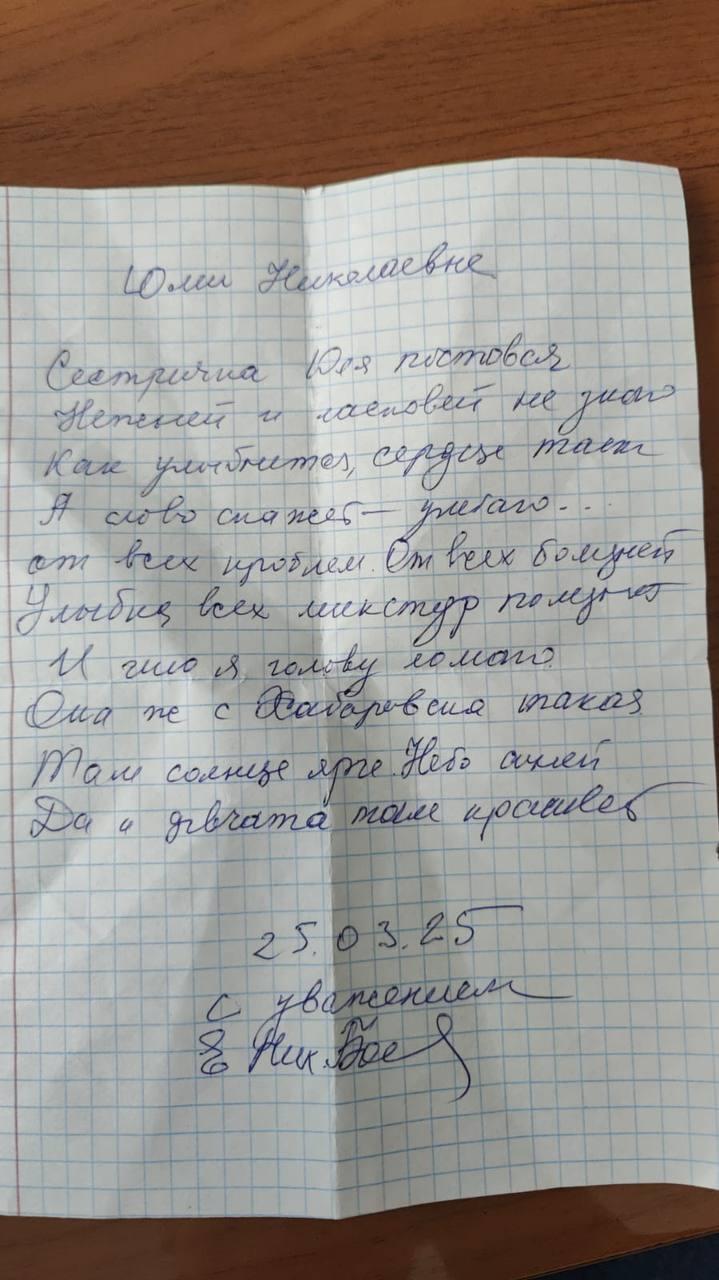 Юлии Николаевне
Сестричка Юля постовая
Нежней и ласковей не знаю
Как улыбнется, сердце тает
А слово скажет — улетаю...
от всех проблем. От всех болезней
Улыбка всех микстур полезней
И чего я голову ломаю
Она ж с Хабаровска такая
Там солнце ярче. Небо синей
Да и дівчата там красивей
25.03.25
С уважением
Ник.